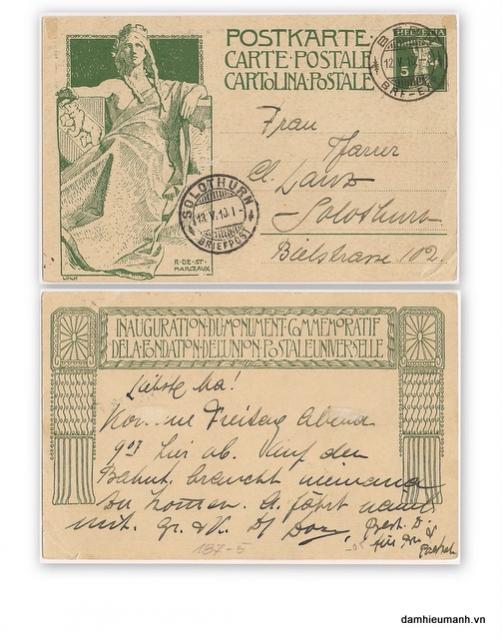 POSTKARTE·
CARTE·POSTALE
CARTOLINA·POSTALE
HELVETIA
5
12.V.
BRF-E
Frau
Pfarrer
Cl. Lanz
Solothurn
Bielstrasse 102.
SOLOTHURN
13.V.10.1-
BRIEFPOST
R·DE·ST·
MARCEAUX
INAUGURATION·DU·MONUMENT·COMMEMORATIF
DE·LA·FONDATION·DE·L'UNION·POSTALE·UNIVERSELLE
Liebste Ma!
Freitag Abend
9 hier ab. Auf den
Bahnh. braucht niemand
zu kommen. A. fährt
mit. Gr. & K.
für
137-5
damhieumanh.vn